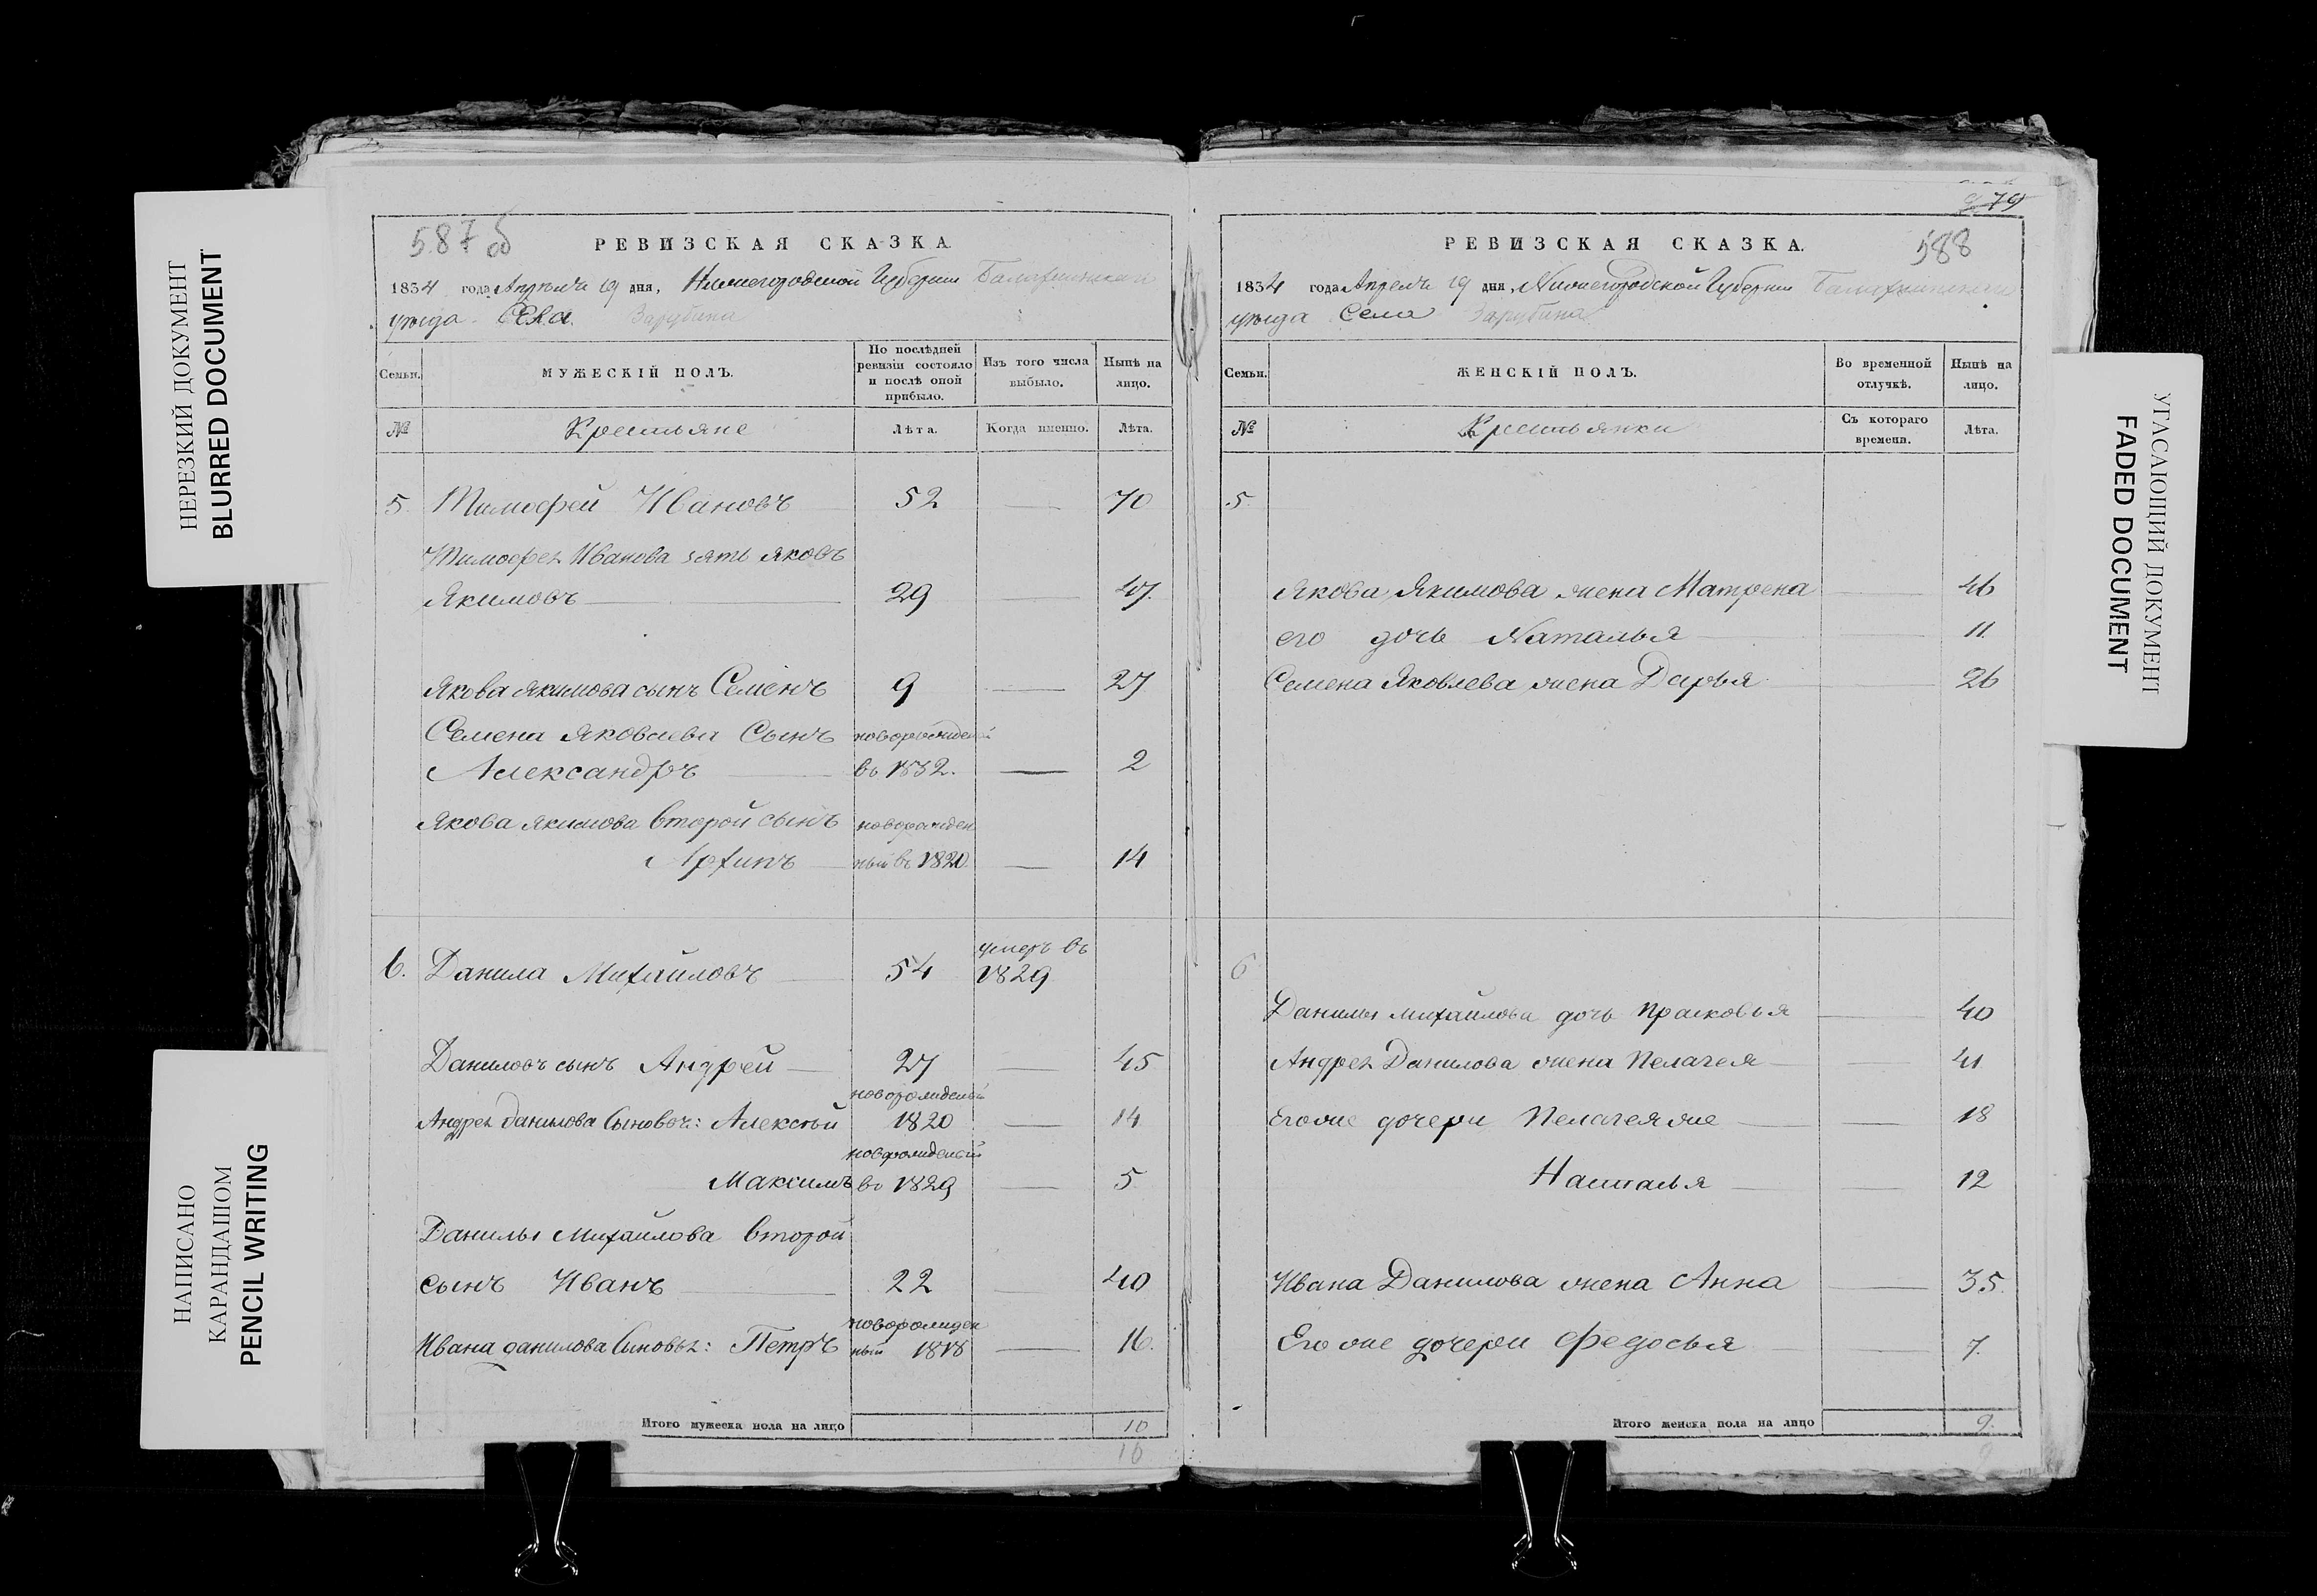 НЕРЕЗКИЙ ДОКУМЕНТ
BLURRED DOCUMENT
НАПИСАНО
КАРАНДАШОМ
PENCIL WRITING
587 об
РЕВИЗСКАЯ СКАЗКА.
1834 года Апреля 19 дня, Нижегородской Губернии Балахнинскаго
уезда Села Зарубина
Семьи.
МУЖЕСКІЙ ПОЛЪ.
По послѣдней ревизіи состояло и послѣ оной прибыло.
Изъ того числа выбыло.
Нынѣ на лицо.
№ Крестьяне Лѣта. Когда именно. Лѣта.
5. Тимофей Ивановъ 52 — 70
Тимофея Иванова зять Яковъ
Якимовъ 29 — 47.
Якова Якимова сынъ Семенъ 9 — 27
Семена Яковлева Сынъ новорожденой
Александръ въ 1832. — 2
Якова Якимова второй сынъ новорожден
Архипъ ный въ 1820 — 14
умеръ въ
6. Данила Михайловъ 54 1829
Даниловъ сынъ Андрей 27 — 45
новорожденый
Андрея Данилова Сыновья: Алексѣй 1820 — 14
новорожденый
Максимъ въ 1829 — 5
Данилы Михайлова второй
сынъ Иванъ 22 — 40
новорожден
Ивана данилова Сыновья: Петръ ный 1818 — 16.
Итого мужеска пола на лицо 10
10
79
588
РЕВИЗСКАЯ СКАЗКА.
1834 года Апреля 19 дня, Нижегородской Губернии Балахнинскаго
уезда Села Зарубина
Семьи.
ЖЕНСКІЙ ПОЛЪ.
Во временной отлучкѣ.
Нынѣ на лицо.
№ Крестьянки Съ котораго времени. Лѣта.
5.
Якова Якимова жена Матрена — 46
его дочь Наталья — 11.
Семена Яковлева жена Дарья — 26
6
Данилы Михайлова дочь Прасковья — 40
Андрея Данилова жена Пелагея — 41
Егоже дочери Пелагея же — 18
Наталья — 12
Ивана Данилова жена Анна — 35.
Его же дочери Федосья — 7.
Итого женска пола на лицо 9.
9
УГАСАЮЩИЙ ДОКУМЕНТ
FADED DOCUMENT